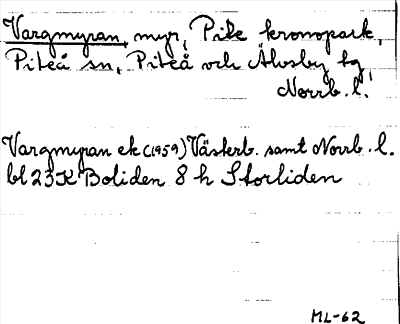 Vargmyran, myr, Pite kronopark,
Piteå sn, Piteå och Älvsby tg,
Norrb. l.
Vargmyran ek (1959) Västerb. samt Norrb. l.
bl 23K Boliden 8 h Storliden
ML-62